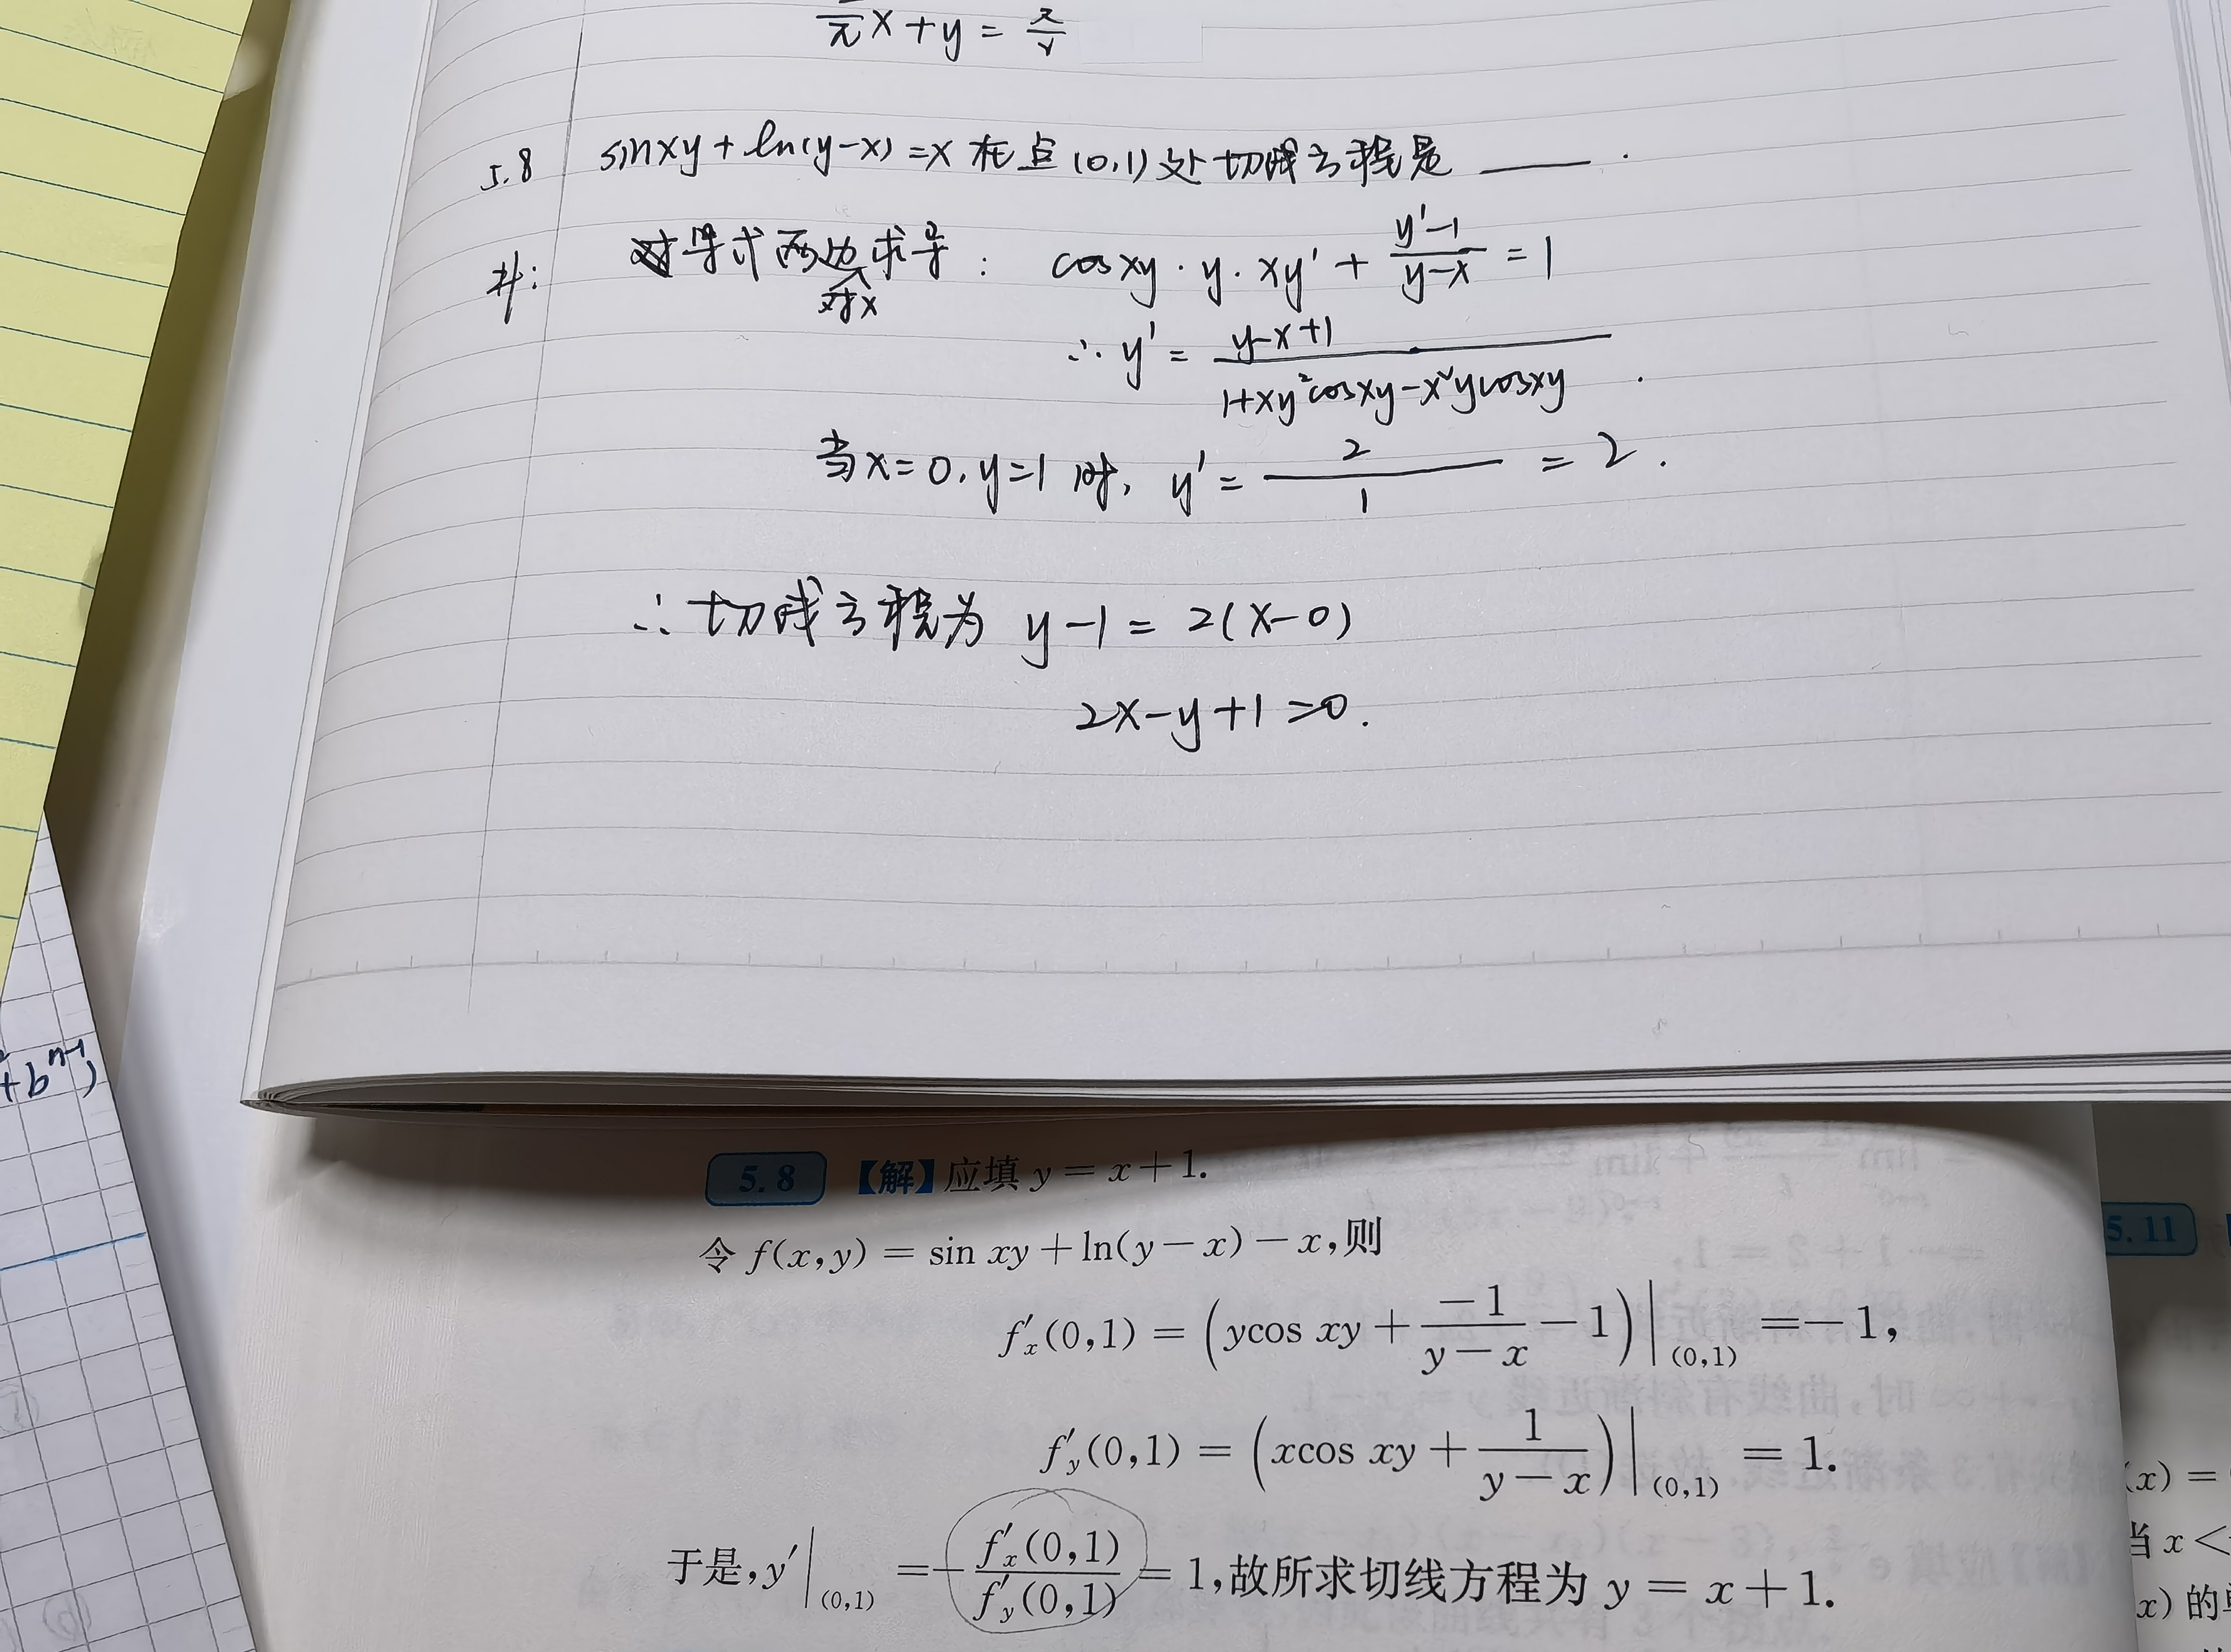 x + y =
5.8 sinxy + ln(y-x) = x 在点(0,1)处切线方程是 ____ .
解: 等式两边对x求导: cosxy · y · xy' + \frac{y'-1}{y-x} = 1
∴ y' = \frac{y-x+1}{1+xy^2cosxy-x^2ycosxy} .
当x=0, y=1 时, y' = \frac{2}{1} = 2 .
∴ 切线方程为 y-1 = 2(x-0)
2x-y+1=0.
+b^{n-1})
5.8 【解】应填 y = x+1.
令 f(x,y) = sin xy + ln(y-x) - x,则
f'_x(0,1) = (ycos xy + \frac{-1}{y-x} - 1)|_{(0,1)} = -1,
f'_y(0,1) = (xcos xy + \frac{1}{y-x})|_{(0,1)} = 1.
于是,y'|_{(0,1)} = -\frac{f'_x(0,1)}{f'_y(0,1)} = 1,故所求切线方程为 y = x+1.
5.11
(x) =
当 x <
x) 的